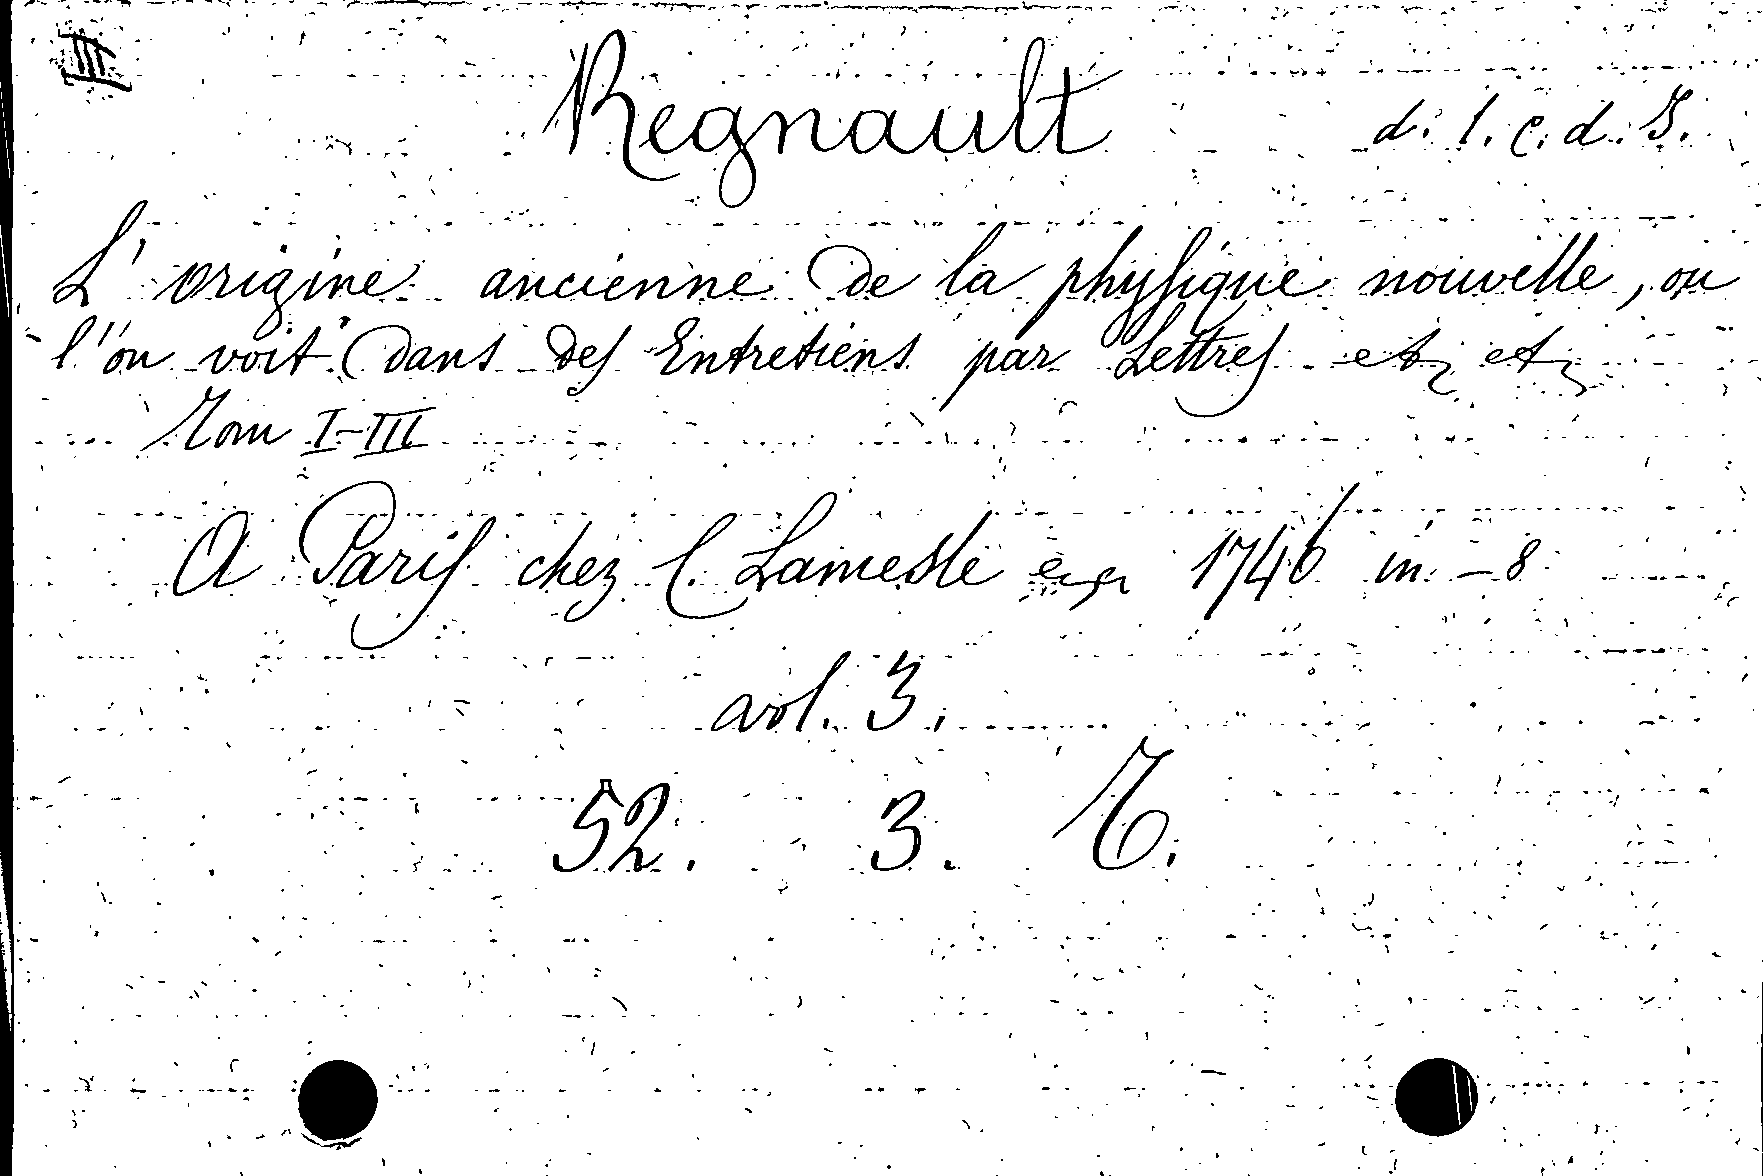 III
Regnault d. l. c. d. J.
L'origine ancienne de la physique nouvelle, ou
l'on voit dans des Entretiens par Lettres etz etz
Tom I-III
A Paris chez C. Lamesle 1746 in-8
vol. 3.
52. 3. T.